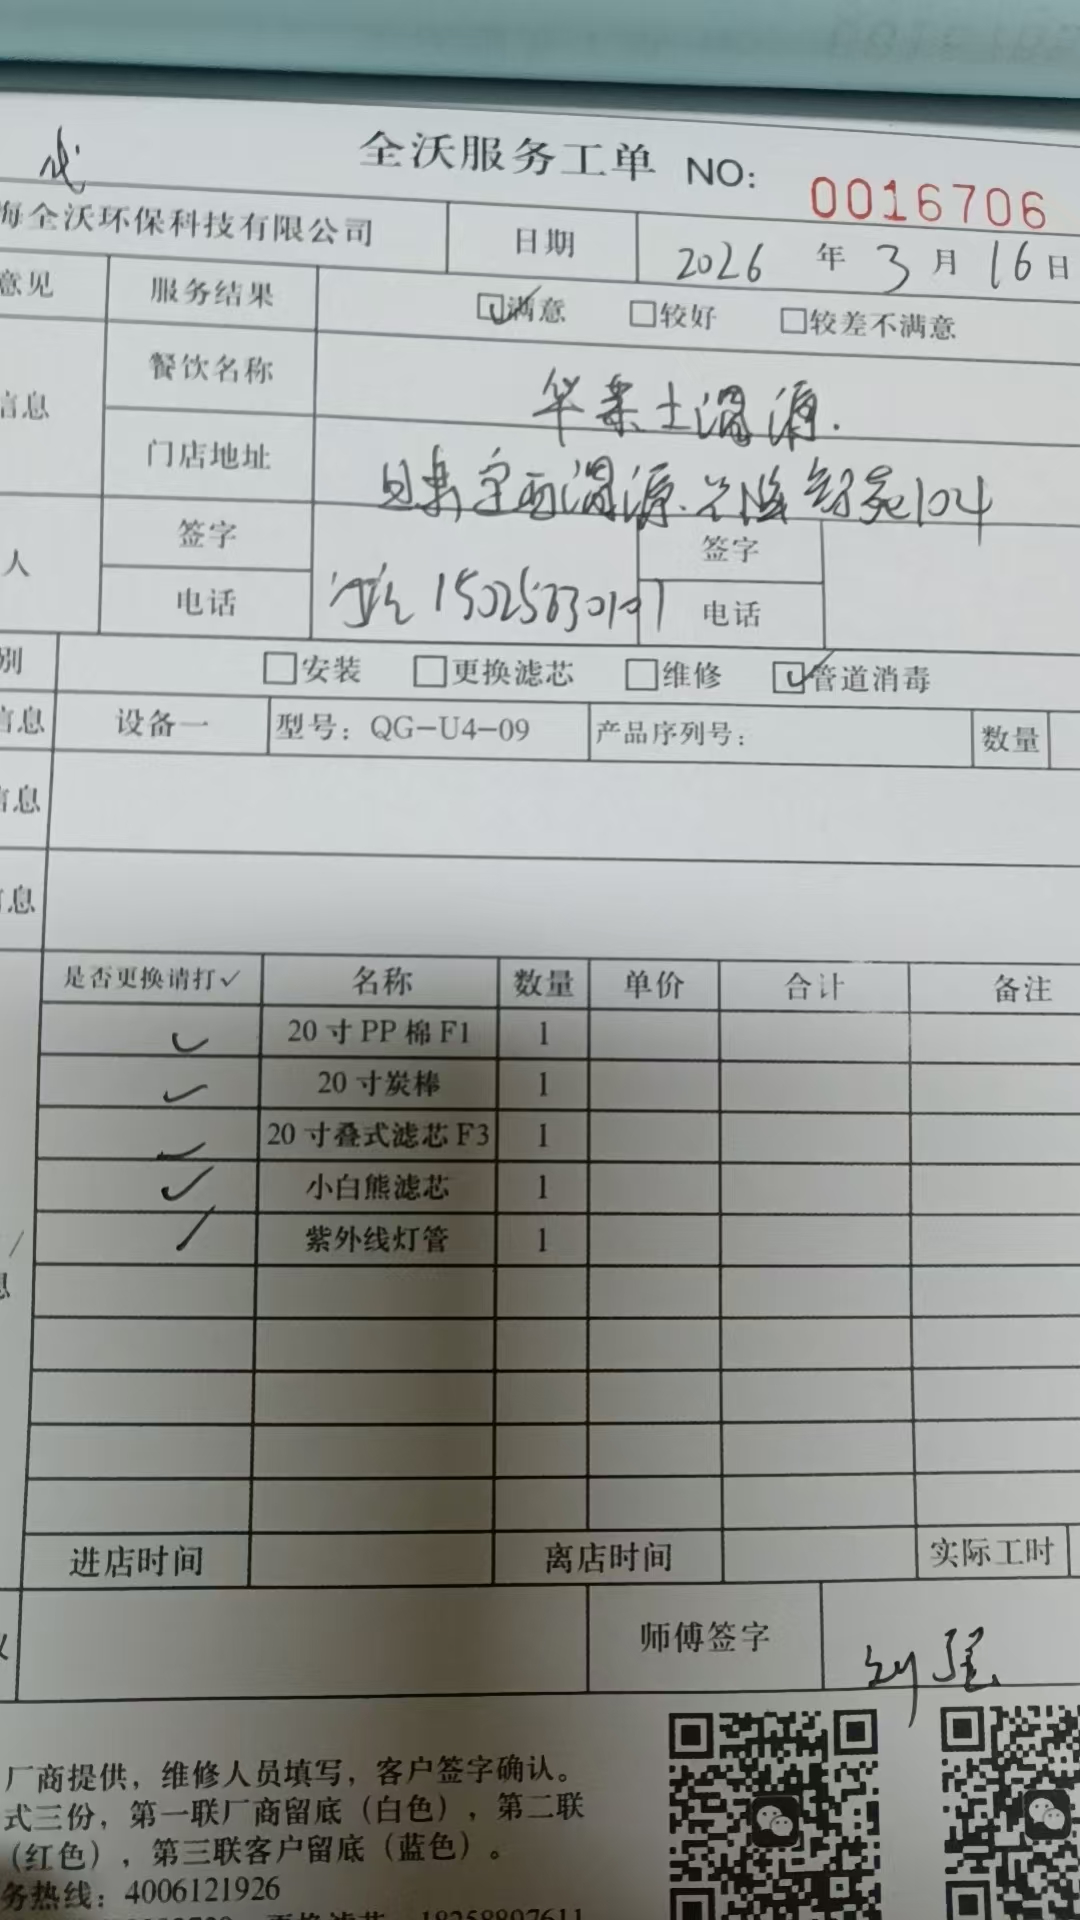 全沃服务工单 NO: 0016706
海全沃环保科技有限公司 日期 2026 年 3 月 16 日
意见 服务结果 ☑满意 □较好 □较差不满意
信息 餐饮名称 华莱士渭源.
门店地址 渭源. 104
人 签字 签字
电话 电话
别 □安装 □更换滤芯 □维修 ☑管道消毒
信息 设备一 型号：QG-U4-09 产品序列号： 数量
信息
信息
是否更换请打✓ 名称 数量 单价 合计 备注
✓ 20 寸 PP 棉 F1 1
✓ 20 寸炭棒 1
✓ 20 寸叠式滤芯 F3 1
✓ 小白熊滤芯 1
/ 紫外线灯管 1
进店时间 离店时间 实际工时
师傅签字 刘强
厂商提供，维修人员填写，客户签字确认。
式三份，第一联厂商留底（白色），第二联
（红色），第三联客户留底（蓝色）。
务热线：4006121926